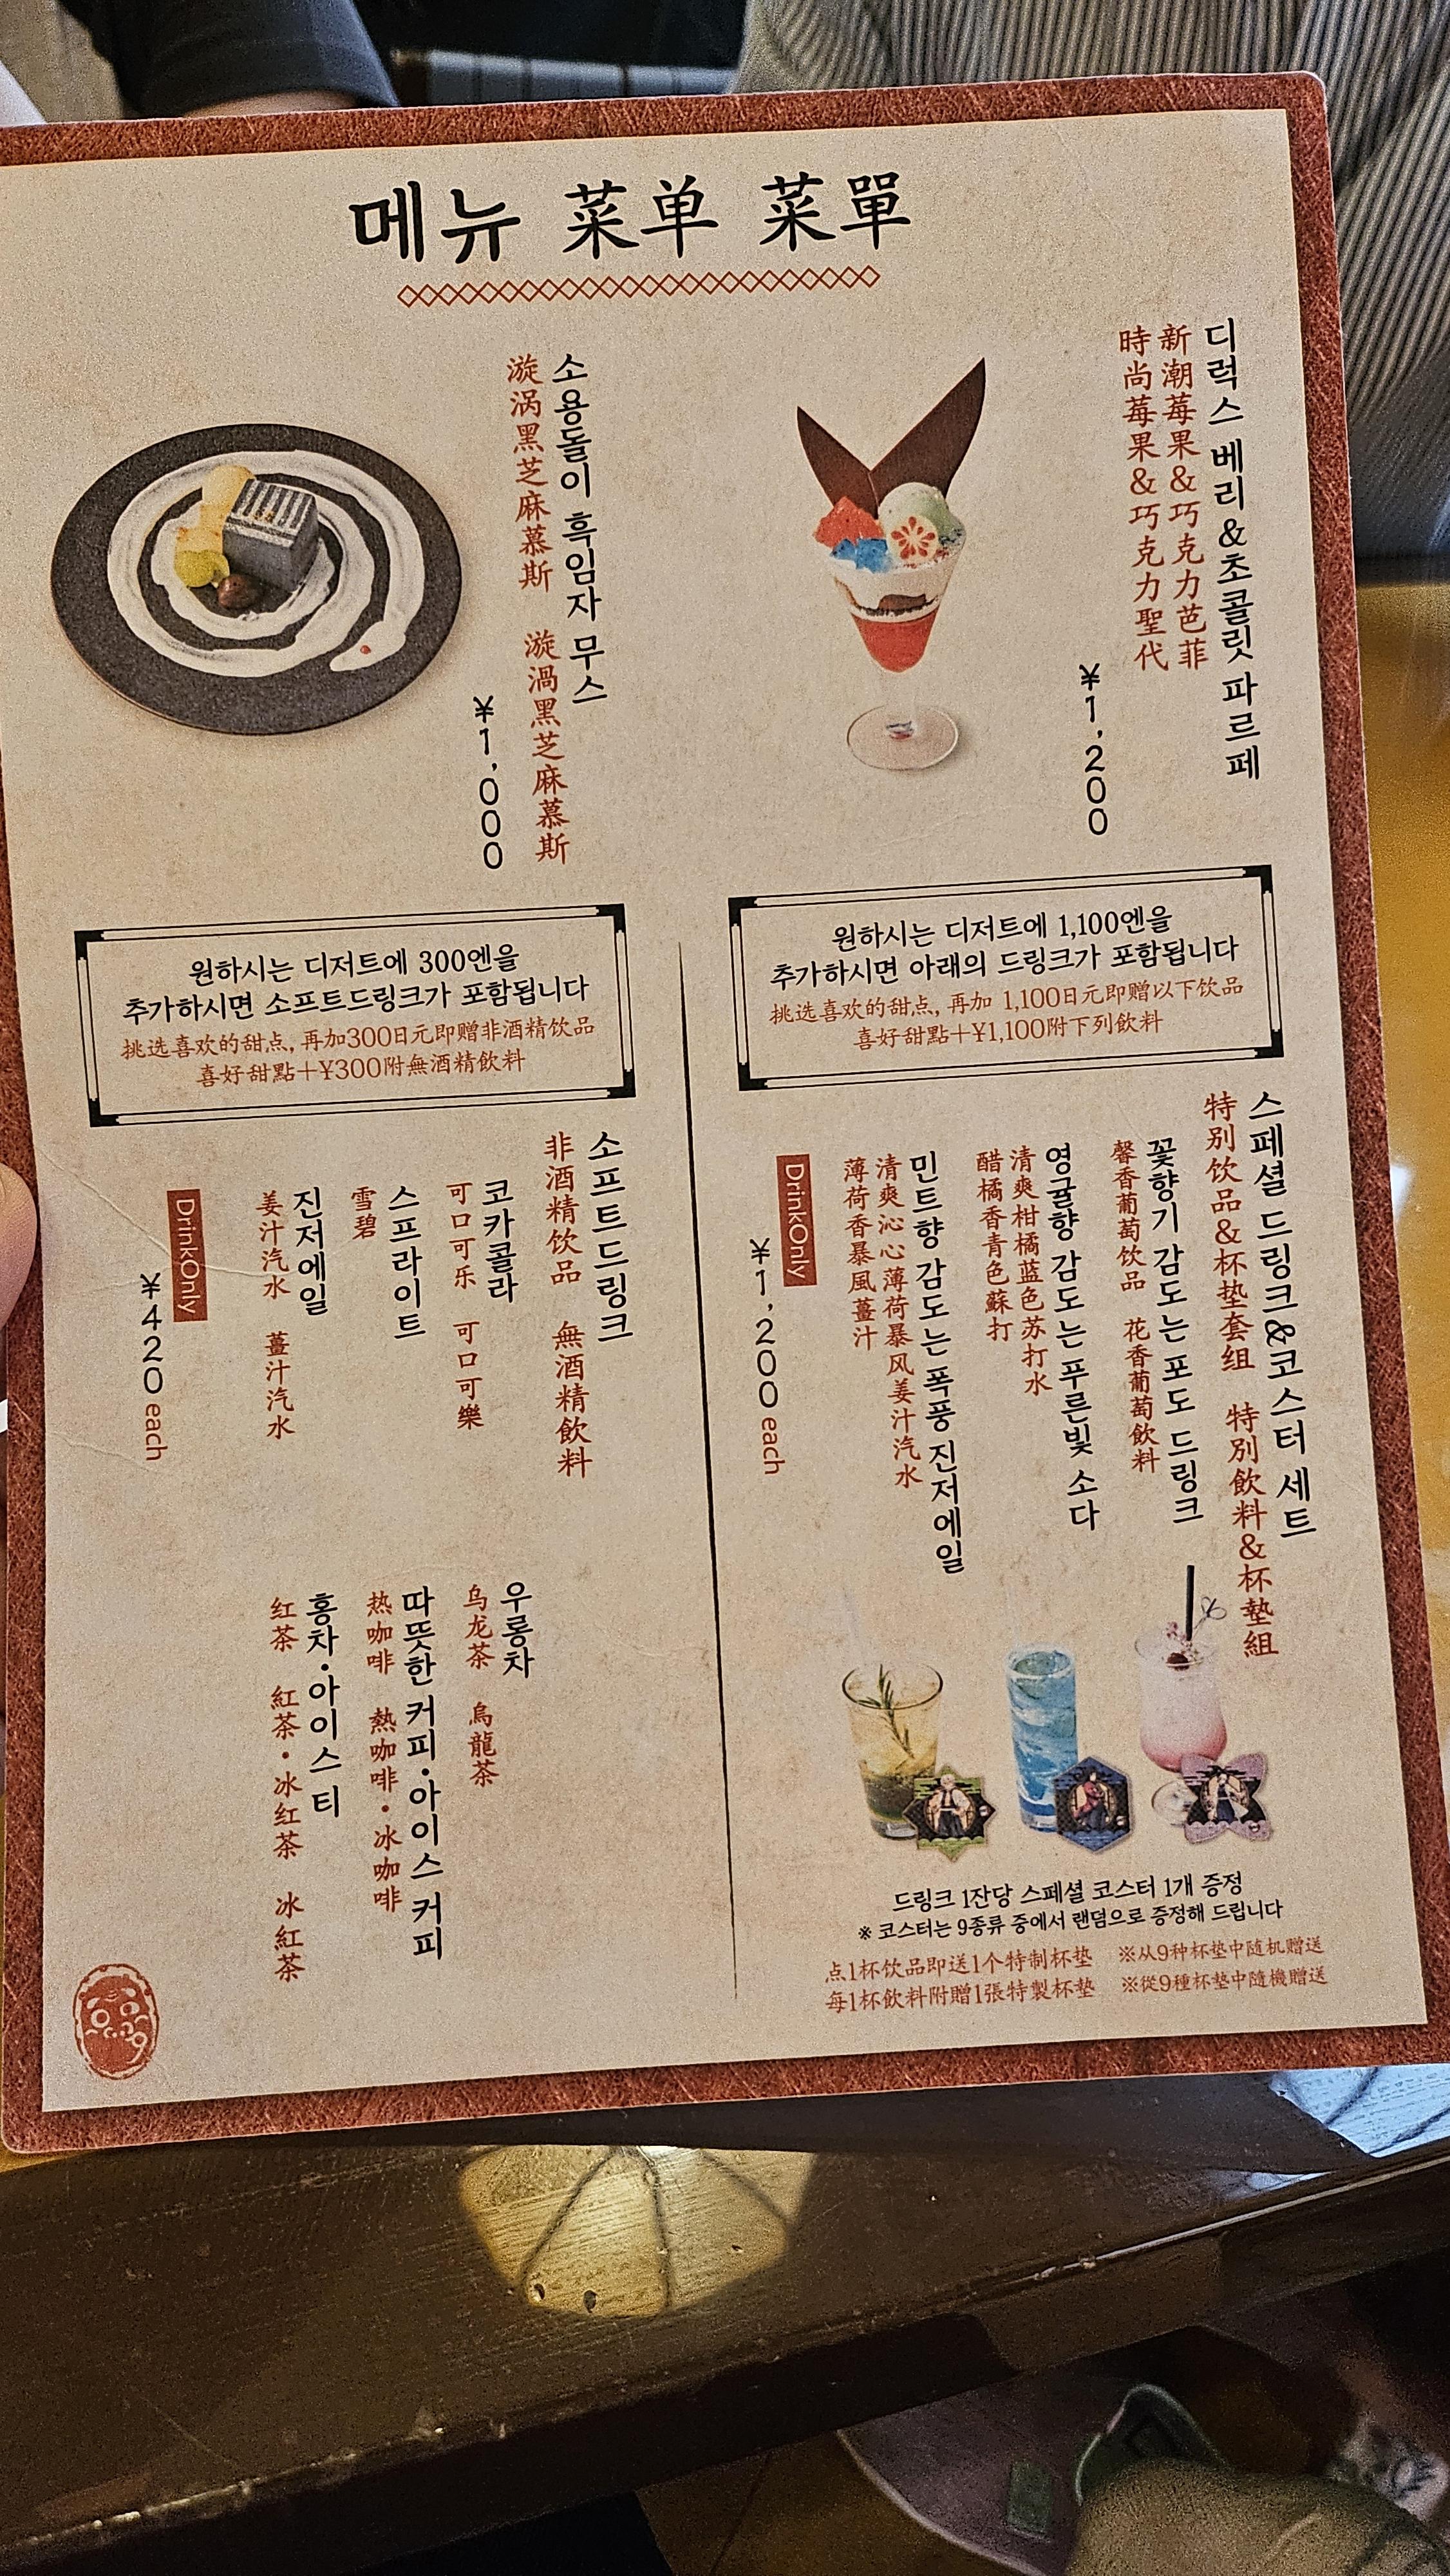 메뉴 菜单 菜單
디럭스 베리&초콜릿 파르페
新潮莓果&巧克力芭菲
時尚莓果&巧克力聖代
¥1,200
소용돌이 흑임자 무스
漩涡黑芝麻慕斯 漩渦黑芝麻慕斯
¥1,000
원하시는 디저트에 1,100엔을
추가하시면 아래의 드링크가 포함됩니다
挑选喜欢的甜点, 再加 1,100日元即赠以下饮品
喜好甜點+¥1,100附下列飲料
스페셜 드링크&코스터 세트
特别饮品&杯垫套组 特別飲料&杯墊組
꽃향기 감도는 포도 드링크
馨香葡萄饮品 花香葡萄飲料
영귤향 감도는 푸른빛 소다
清爽柑橘蓝色苏打水
醋橘香青色蘇打
민트향 감도는 폭풍 진저에일
清爽沁心薄荷暴风姜汁汽水
薄荷香暴風薑汁
DrinkOnly
¥1,200 each
드링크 1잔당 스페셜 코스터 1개 증정
※ 코스터는 9종류 중에서 랜덤으로 증정해 드립니다
点1杯饮品即送1个特制杯垫 ※从9种杯垫中随机赠送
每1杯飲料附贈1張特製杯墊 ※從9種杯墊中隨機贈送
원하시는 디저트에 300엔을
추가하시면 소프트드링크가 포함됩니다
挑选喜欢的甜点, 再加300日元即赠非酒精饮品
喜好甜點+¥300附無酒精飲料
소프트드링크
非酒精饮品 無酒精飲料
코카콜라
可口可乐 可口可樂
스프라이트
雪碧
진저에일
姜汁汽水 薑汁汽水
우롱차
乌龙茶 烏龍茶
따뜻한 커피·아이스 커피
热咖啡 熱咖啡·冰咖啡
홍차·아이스 티
红茶 紅茶·冰红茶 冰紅茶
DrinkOnly
¥420 each